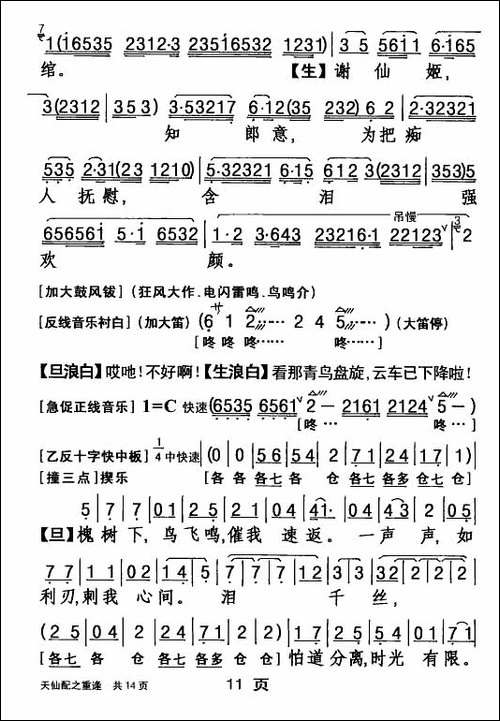 1(i6535 2312·3 2235i6532 1231) | 3 5 56i1 6·i65
绾。 【生】谢 仙 姬,
3(2312 | 353) 3·53217 6·12(35 | 232) 6 2 2·32321
知 郎 意, 为把 痴
535 2·31(23 1210) | 5·32321 6·15 612 3(2312 | 353)5
人 抚慰, 含 泪 强
吊慢
656561 5·i 6532 | 1·2 3·643 23216·1 22123 2
欢 颜。
[加大鼓风钹] (狂风大作.电闪雷鸣.鸟鸣介)
[反线音乐衬白] (加大笛) (6 1 2…… 2 4 5……) (大笛停)
[咚 咚 咚…… 咚 咚……]
【旦浪白】哎吔!不好啊!【生浪白】看那青鸟盘旋,云车已下降啦!
[急促正线音乐] 1=C 快速 (6535 6561 2 – 2161 2124 5 – )
[咚… 咚…]
[乙反十字快中板] 1/4 中快速 (0 | 0 | 56 | 54 | 2 | 71 | 24 | 17 | 1)
[撞三点]揳乐 [各 各 各七 各 仓 各七 各多 仓七 仓]
5 | 7 | 01 | 25 | 21 | 04 | 41· | 04 | 43 | 2 | 05
【旦】槐树 下, 鸟飞鸣,催我 速返。 一声 声, 如
77 | 11 | 02 | 14 | 5 | 77 | 71 | 22 | 32 | 2 | 2
利刃,刺我 心间。 泪 千 丝,
(25 | 04 | 2 | 22 | 54 | 2) | 17 | 71 | 54 | 01 | 71
[各七 各 仓 各七 各多 仓] 怕道分离,时光 有限。
天仙配之重逢 共14页 11 页